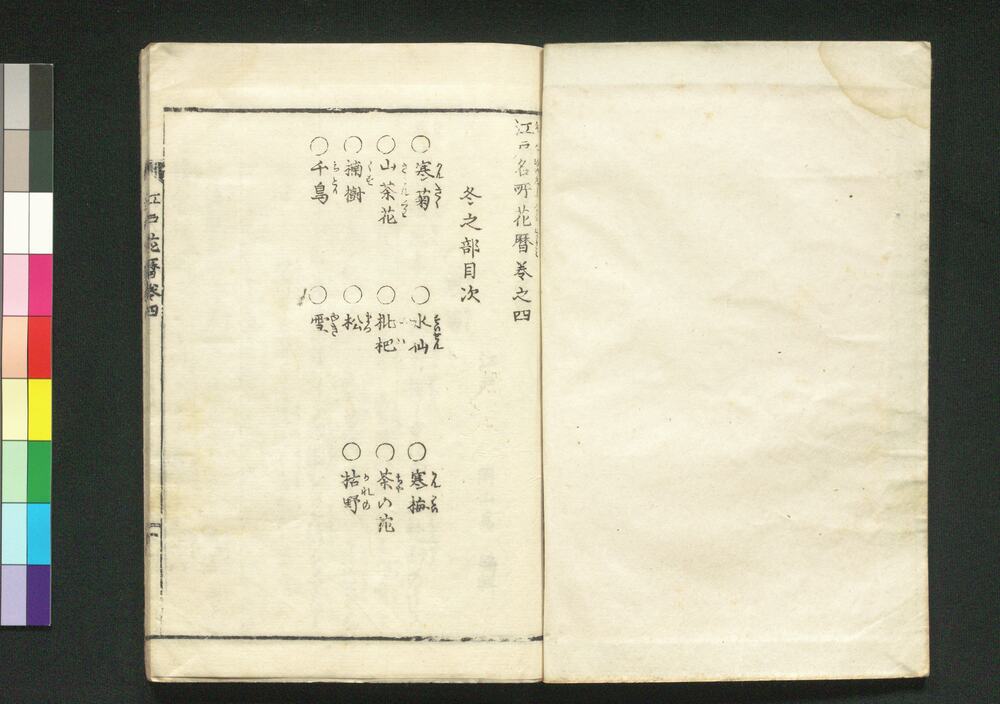 江戸名所花暦巻之四
冬之部目次
○寒菊 ○水仙 ○寒梅
○山茶花 ○枇杷 ○茶の花
○橘樹 ○松 ○枯野
○千鳥 ○雪
江戸花暦巻四